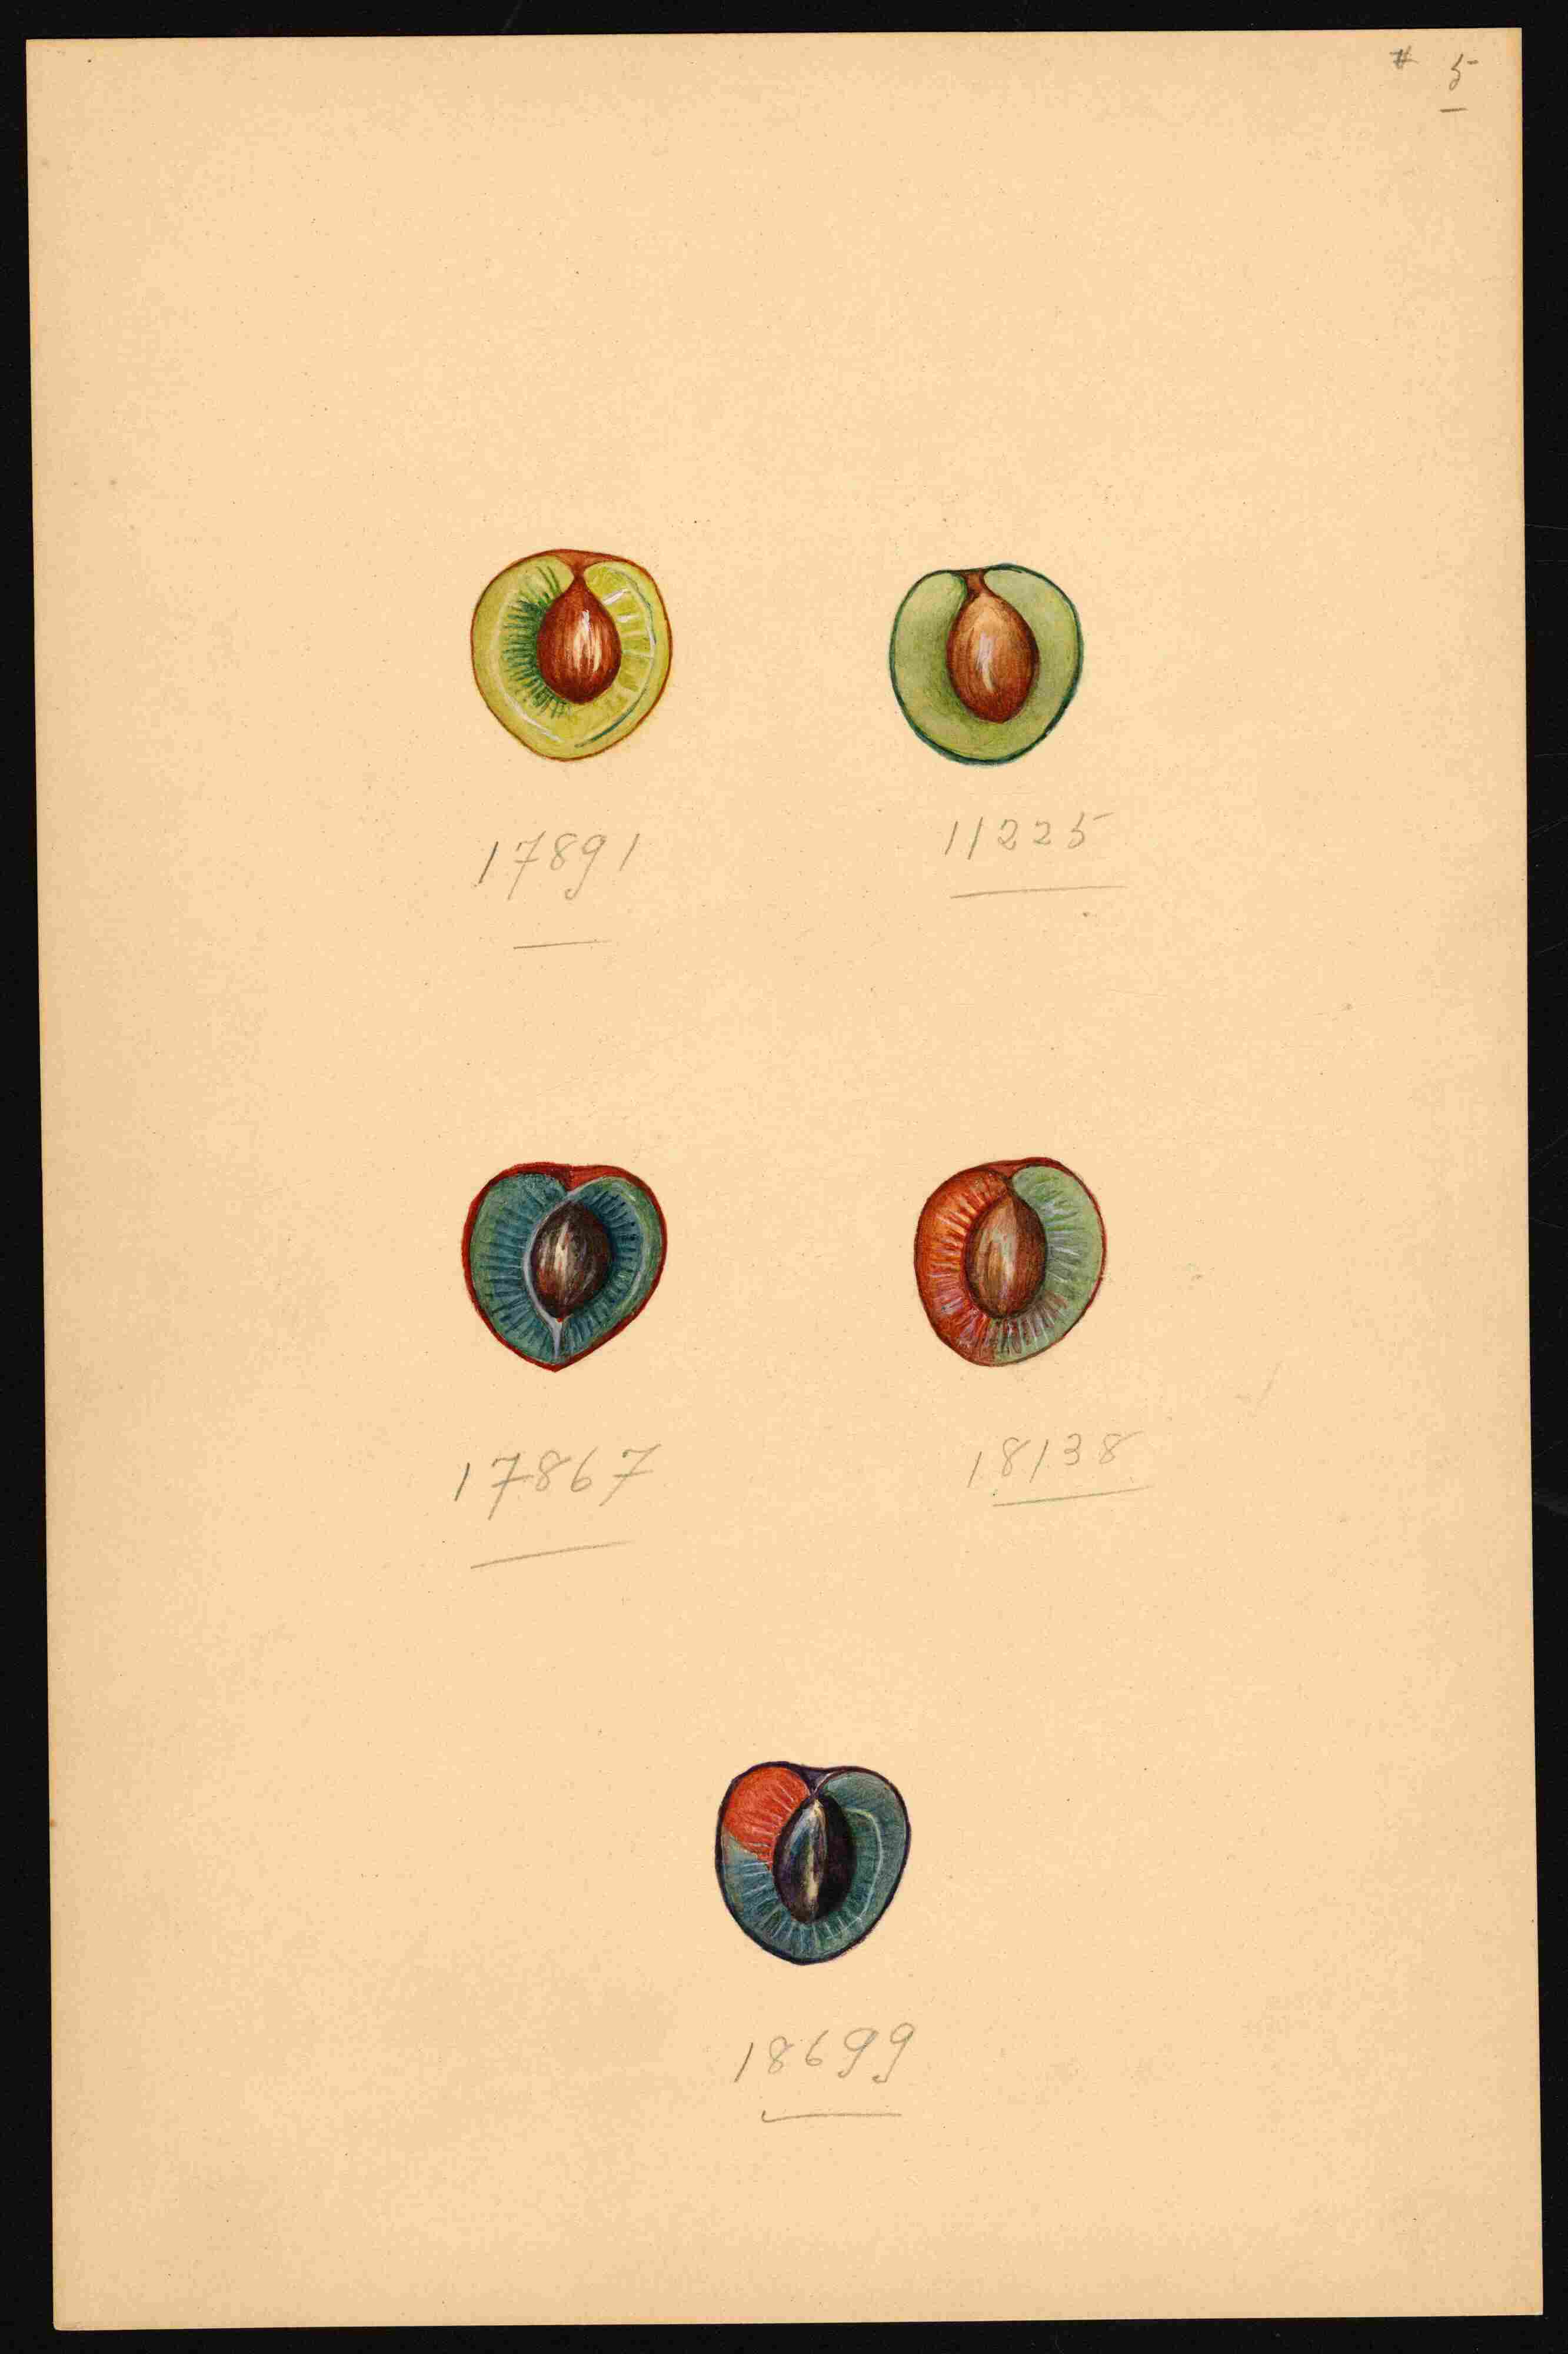 # 5
17891
11225
17867
18138
18699